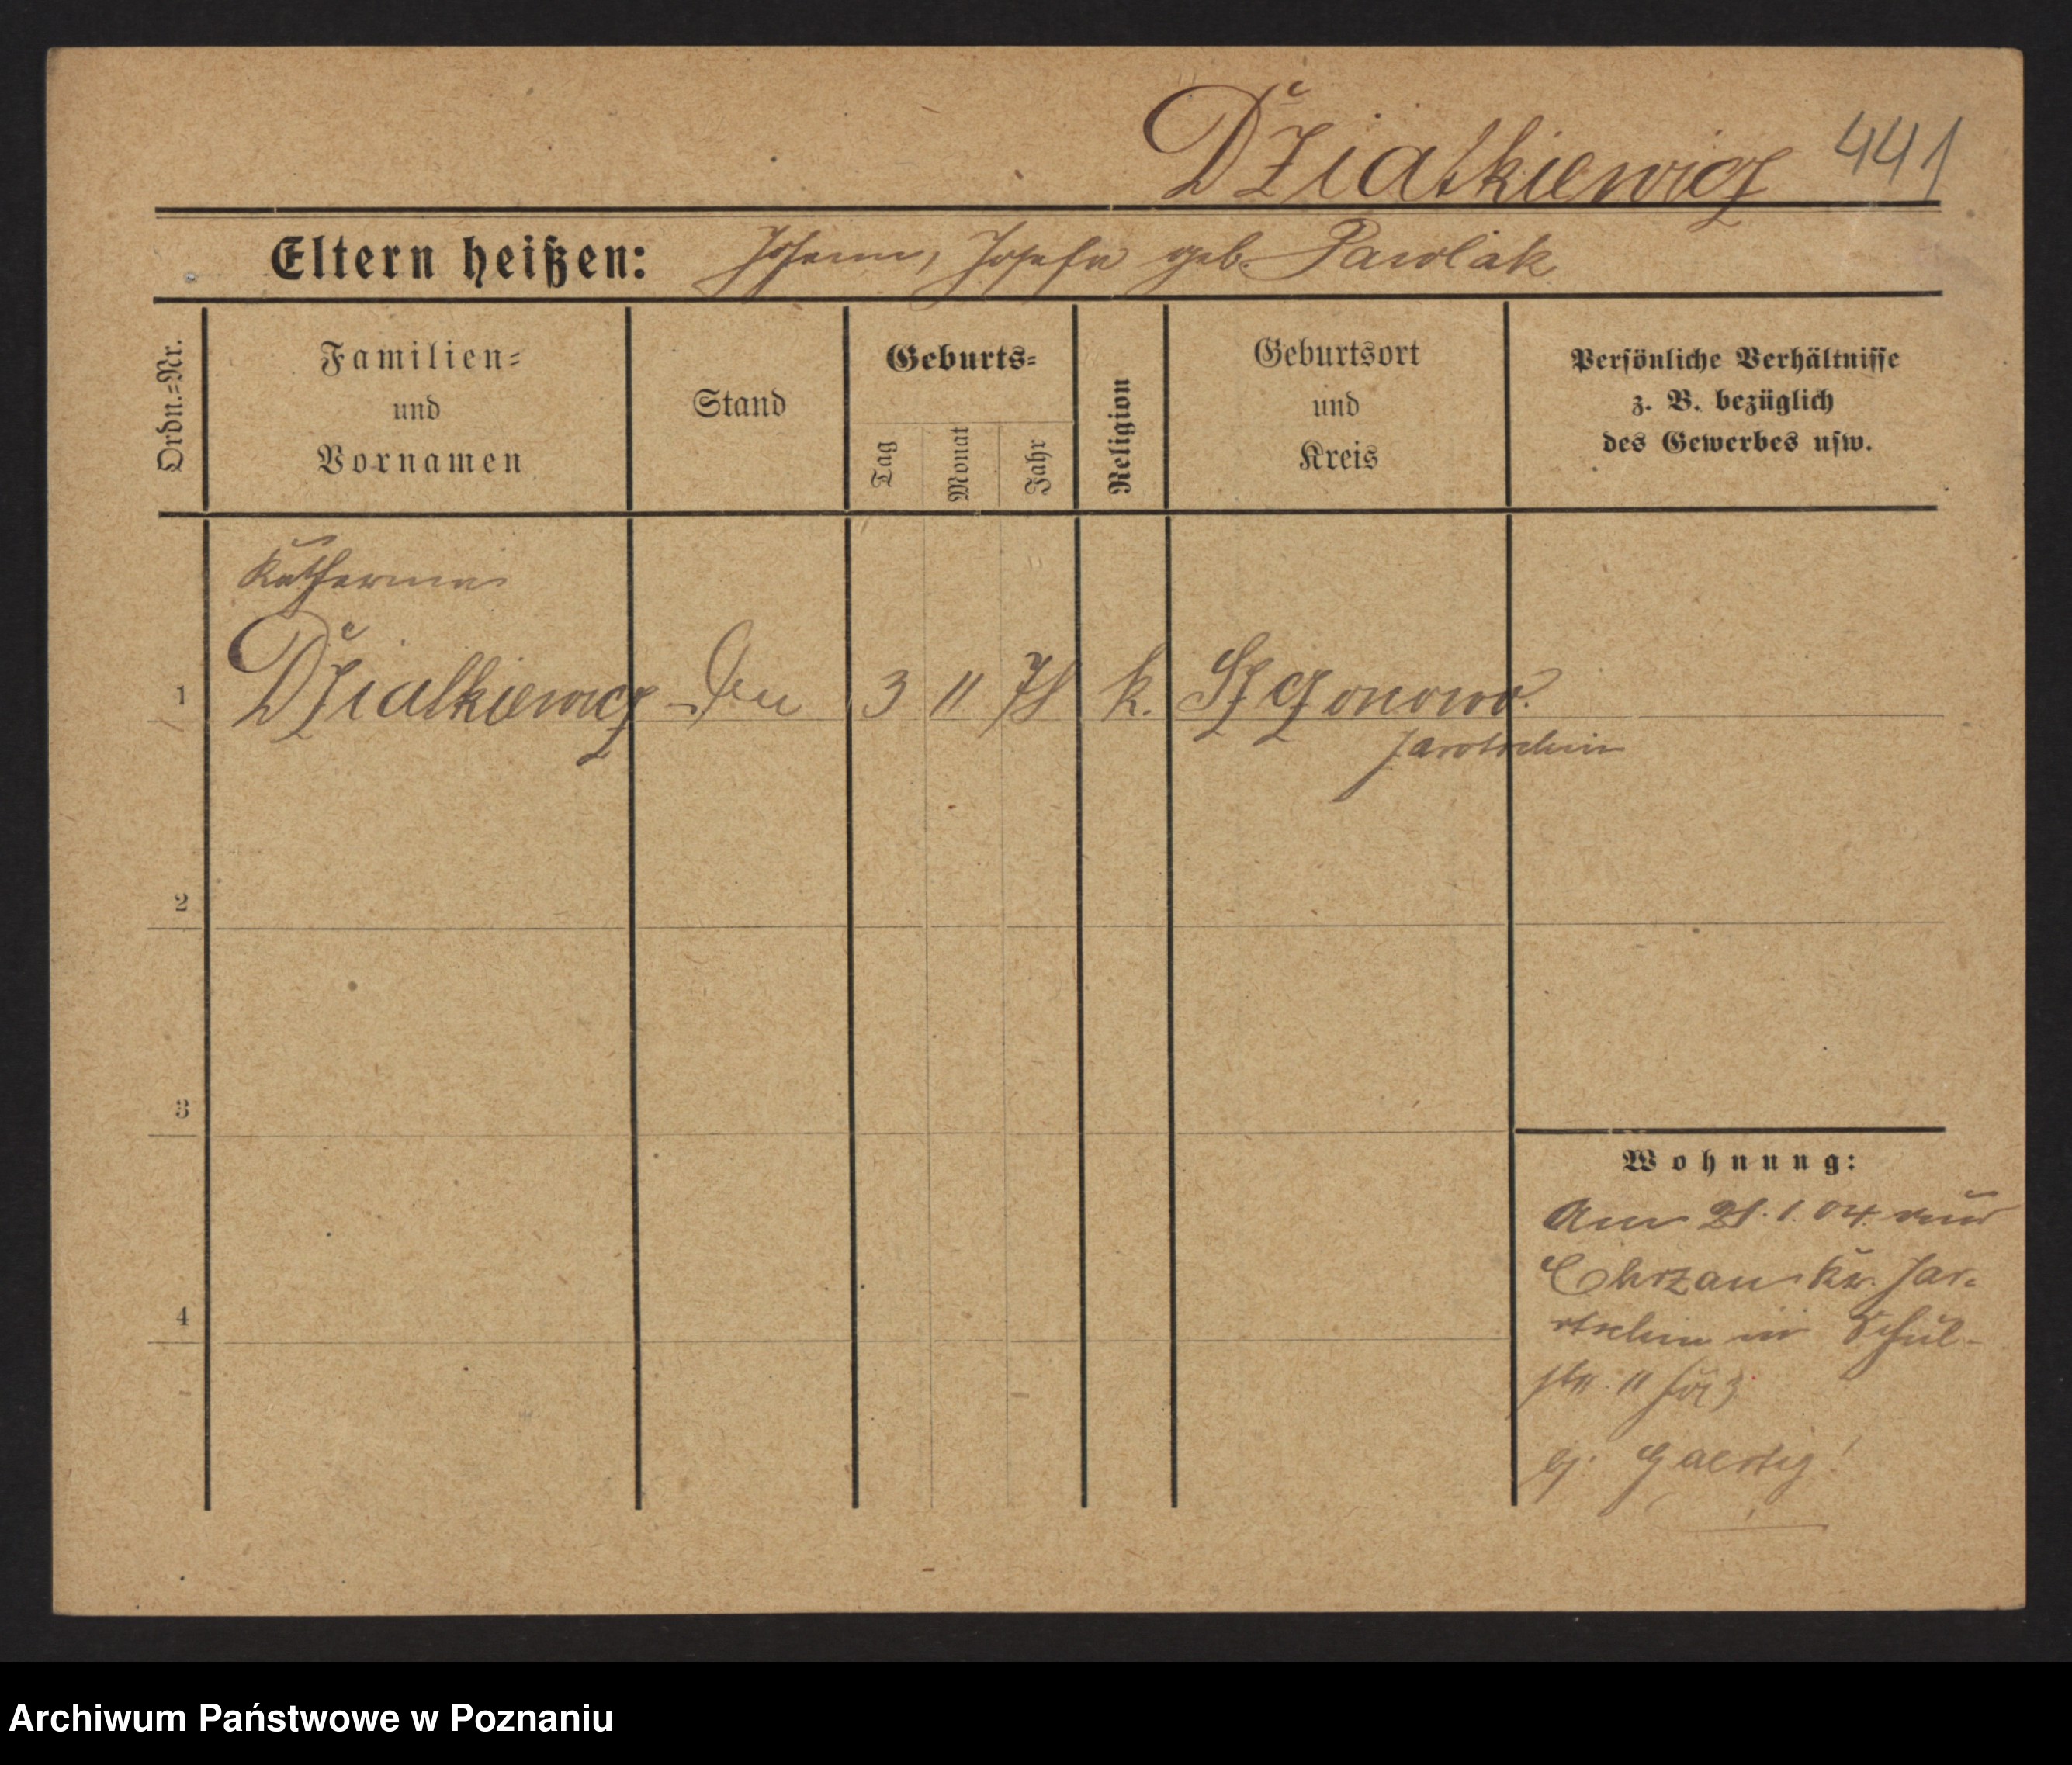 Dziatkiewicz 441
Eltern heißen: Johann, Josefa geb. Pawlak
Ordn.=Nr.
Familien=
und
Vornamen
Stand
Geburts=
Tag
Monat
Jahr
Religion
Geburtsort
und
Kreis
Persönliche Verhältnisse
z. B. bezüglich
des Gewerbes usw.
Katharina
1 Dziatkiewicz 3 11 78 k. Szczonowo.
Jarotschin
2
3
4
Wohnung:
Am 21.1.04. aus
Chrzan Kr. Jar-
otschin in Schul-
str. 11
Archiwum Państwowe w Poznaniu